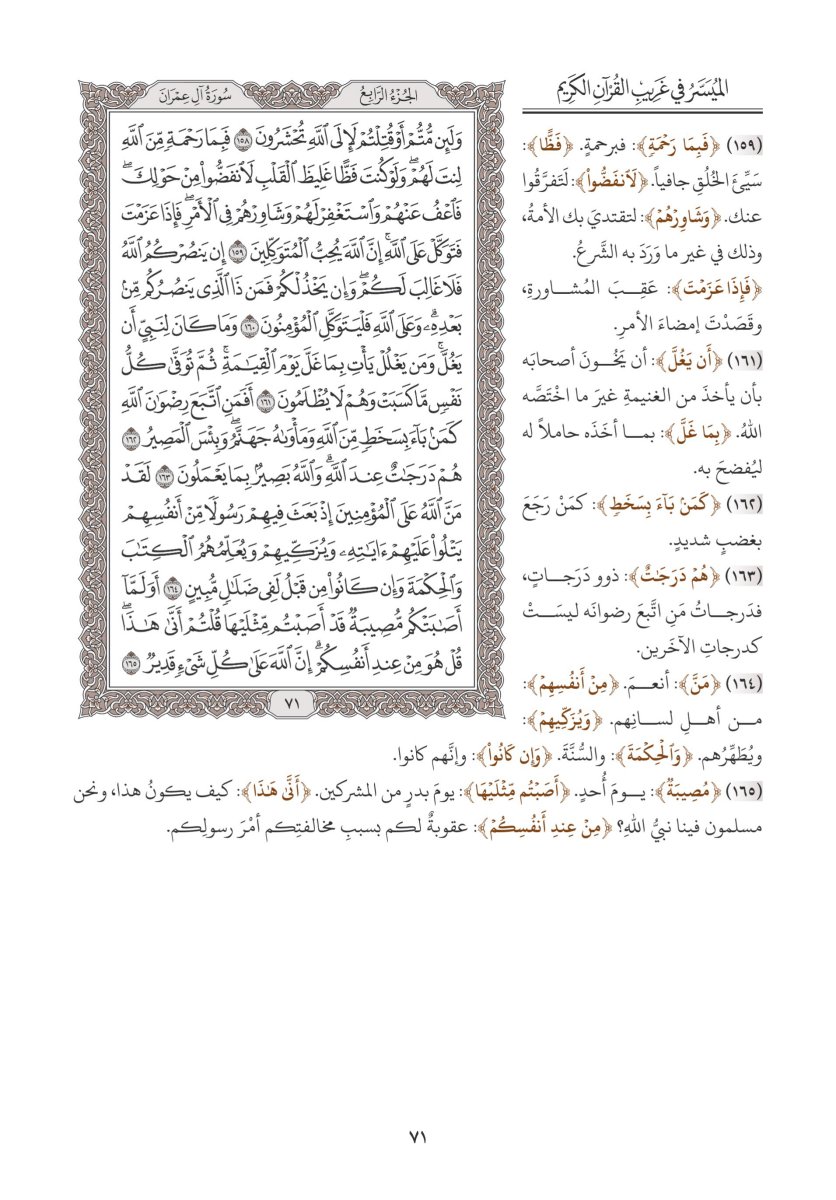 الميسر في غريب القرآن الكريم
(١٥٩) ﴿فَبِمَا رَحْمَةٍ﴾: فبرحمةٍ. ﴿فَظًّا﴾:
سَيِّئَ الخُلُقِ جافياً. ﴿لَٱنفَضُّوا۟﴾: لَتَفرَّقُوا
عنك. ﴿وَشَاوِرْهُمْ﴾: لتقتديَ بك الأمةُ،
وذلك في غير ما وَرَدَ به الشَّرعُ.
﴿فَإِذَا عَزَمْتَ﴾: عَقِبَ المُشاورةِ،
وقَصَدْتَ إمضاءَ الأمرِ.
(١٦١) ﴿أَن يَغُلَّ﴾: أن يَخُونَ أصحابَه
بأن يأخذَ من الغنيمةِ غيرَ ما اخْتَصَّه
اللهُ. ﴿بِمَا غَلَّ﴾: بما أخَذَه حاملاً له
ليُفضحَ به.
(١٦٢) ﴿كَمَنۢ بَآءَ بِسَخَطٍ﴾: كمَنْ رَجَعَ
بغضبٍ شديدٍ.
(١٦٣) ﴿هُمْ دَرَجَٰتٌ﴾: ذوو دَرَجاتٍ،
فدَرجاتُ مَنِ اتَّبعَ رضوانَه ليسَتْ
كدرجاتِ الآخَرين.
(١٦٤) ﴿مَنَّ﴾: أنعمَ. ﴿مِنْ أَنفُسِهِمْ﴾:
من أهلِ لسانِهم. ﴿وَيُزَكِّيهِمْ﴾:
ويُطَهِّرُهم. ﴿وَٱلْحِكْمَةَ﴾: والسُّنَّةَ. ﴿وَإِن كَانُوا۟﴾: وإنَّهم كانوا.
(١٦٥) ﴿مُصِيبَةٌ﴾: يومَ أُحدٍ. ﴿أَصَبْتُم مِّثْلَيْهَا﴾: يومَ بدرٍ من المشركين. ﴿أَنَّىٰ هَٰذَا﴾: كيف يكونُ هذا، ونحن
مسلمون فينا نبيُّ اللهِ؟ ﴿مِنْ عِندِ أَنفُسِكُمْ﴾: عقوبةٌ لكم بسببِ مخالفتِكم أمْرَ رسولِكم.
الجُزْءُ الرَّابِعُ
سُورَةُ آلِ عِمْرَانَ
وَلَئِن مُّتُّمْ أَوْ قُتِلْتُمْ لَإِلَى ٱللَّهِ تُحْشَرُونَ ١٥٨ فَبِمَا رَحْمَةٍ مِّنَ ٱللَّهِ
لِنتَ لَهُمْ ۖ وَلَوْ كُنتَ فَظًّا غَلِيظَ ٱلْقَلْبِ لَٱنفَضُّوا۟ مِنْ حَوْلِكَ ۖ
فَٱعْفُ عَنْهُمْ وَٱسْتَغْفِرْ لَهُمْ وَشَاوِرْهُمْ فِى ٱلْأَمْرِ ۖ فَإِذَا عَزَمْتَ
فَتَوَكَّلْ عَلَى ٱللَّهِ ۚ إِنَّ ٱللَّهَ يُحِبُّ ٱلْمُتَوَكِّلِينَ ١٥٩ إِن يَنصُرْكُمُ ٱللَّهُ
فَلَا غَالِبَ لَكُمْ ۖ وَإِن يَخْذُلْكُمْ فَمَن ذَا ٱلَّذِى يَنصُرُكُم مِّنۢ
بَعْدِهِۦ ۗ وَعَلَى ٱللَّهِ فَلْيَتَوَكَّلِ ٱلْمُؤْمِنُونَ ١٦٠ وَمَا كَانَ لِنَبِىٍّ أَن
يَغُلَّ ۚ وَمَن يَغْلُلْ يَأْتِ بِمَا غَلَّ يَوْمَ ٱلْقِيَٰمَةِ ۚ ثُمَّ تُوَفَّىٰ كُلُّ
نَفْسٍ مَّا كَسَبَتْ وَهُمْ لَا يُظْلَمُونَ ١٦١ أَفَمَنِ ٱتَّبَعَ رِضْوَٰنَ ٱللَّهِ
كَمَنۢ بَآءَ بِسَخَطٍ مِّنَ ٱللَّهِ وَمَأْوَىٰهُ جَهَنَّمُ ۚ وَبِئْسَ ٱلْمَصِيرُ ١٦٢
هُمْ دَرَجَٰتٌ عِندَ ٱللَّهِ ۗ وَٱللَّهُ بَصِيرٌۢ بِمَا يَعْمَلُونَ ١٦٣ لَقَدْ
مَنَّ ٱللَّهُ عَلَى ٱلْمُؤْمِنِينَ إِذْ بَعَثَ فِيهِمْ رَسُولًا مِّنْ أَنفُسِهِمْ
يَتْلُوا۟ عَلَيْهِمْ ءَايَٰتِهِۦ وَيُزَكِّيهِمْ وَيُعَلِّمُهُمُ ٱلْكِتَٰبَ
وَٱلْحِكْمَةَ وَإِن كَانُوا۟ مِن قَبْلُ لَفِى ضَلَٰلٍ مُّبِينٍ ١٦٤ أَوَلَمَّآ
أَصَٰبَتْكُم مُّصِيبَةٌ قَدْ أَصَبْتُم مِّثْلَيْهَا قُلْتُمْ أَنَّىٰ هَٰذَا ۖ
قُلْ هُوَ مِنْ عِندِ أَنفُسِكُمْ ۗ إِنَّ ٱللَّهَ عَلَىٰ كُلِّ شَىْءٍ قَدِيرٌ ١٦٥
٧١
٧١